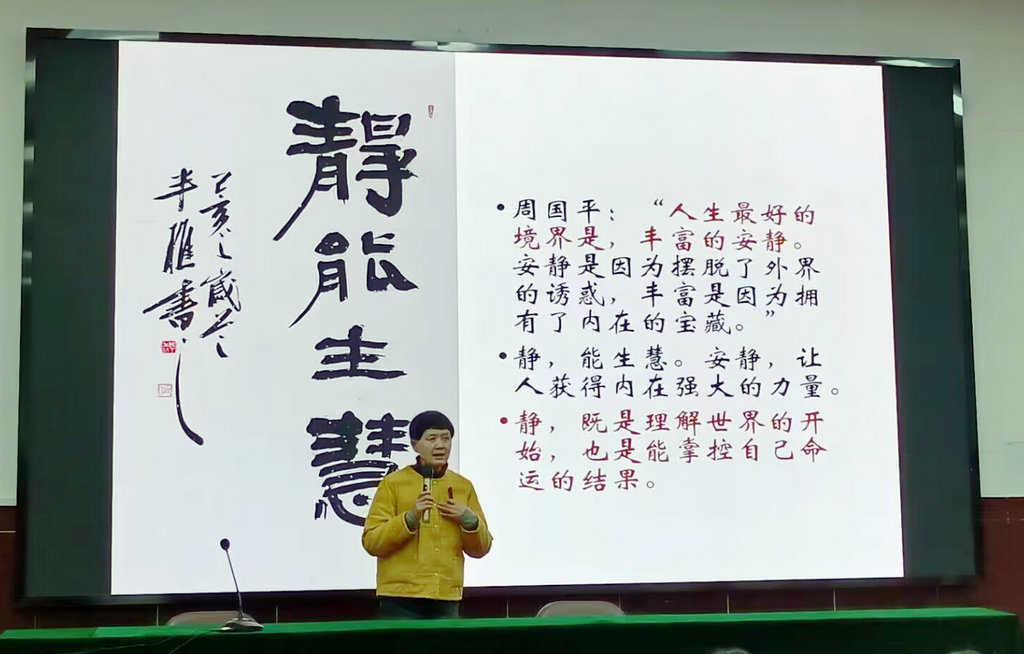 静能生慧
己亥之岁冬
半雁書
• 周国平：“人生最好的
境界是，丰富的安静。
安静是因为摆脱了外界
的诱惑，丰富是因为拥
有了内在的宝藏。”
• 静，能生慧。安静，让
人获得内在强大的力量。
• 静，既是理解世界的开
始，也是能掌控自己命
运的结果。